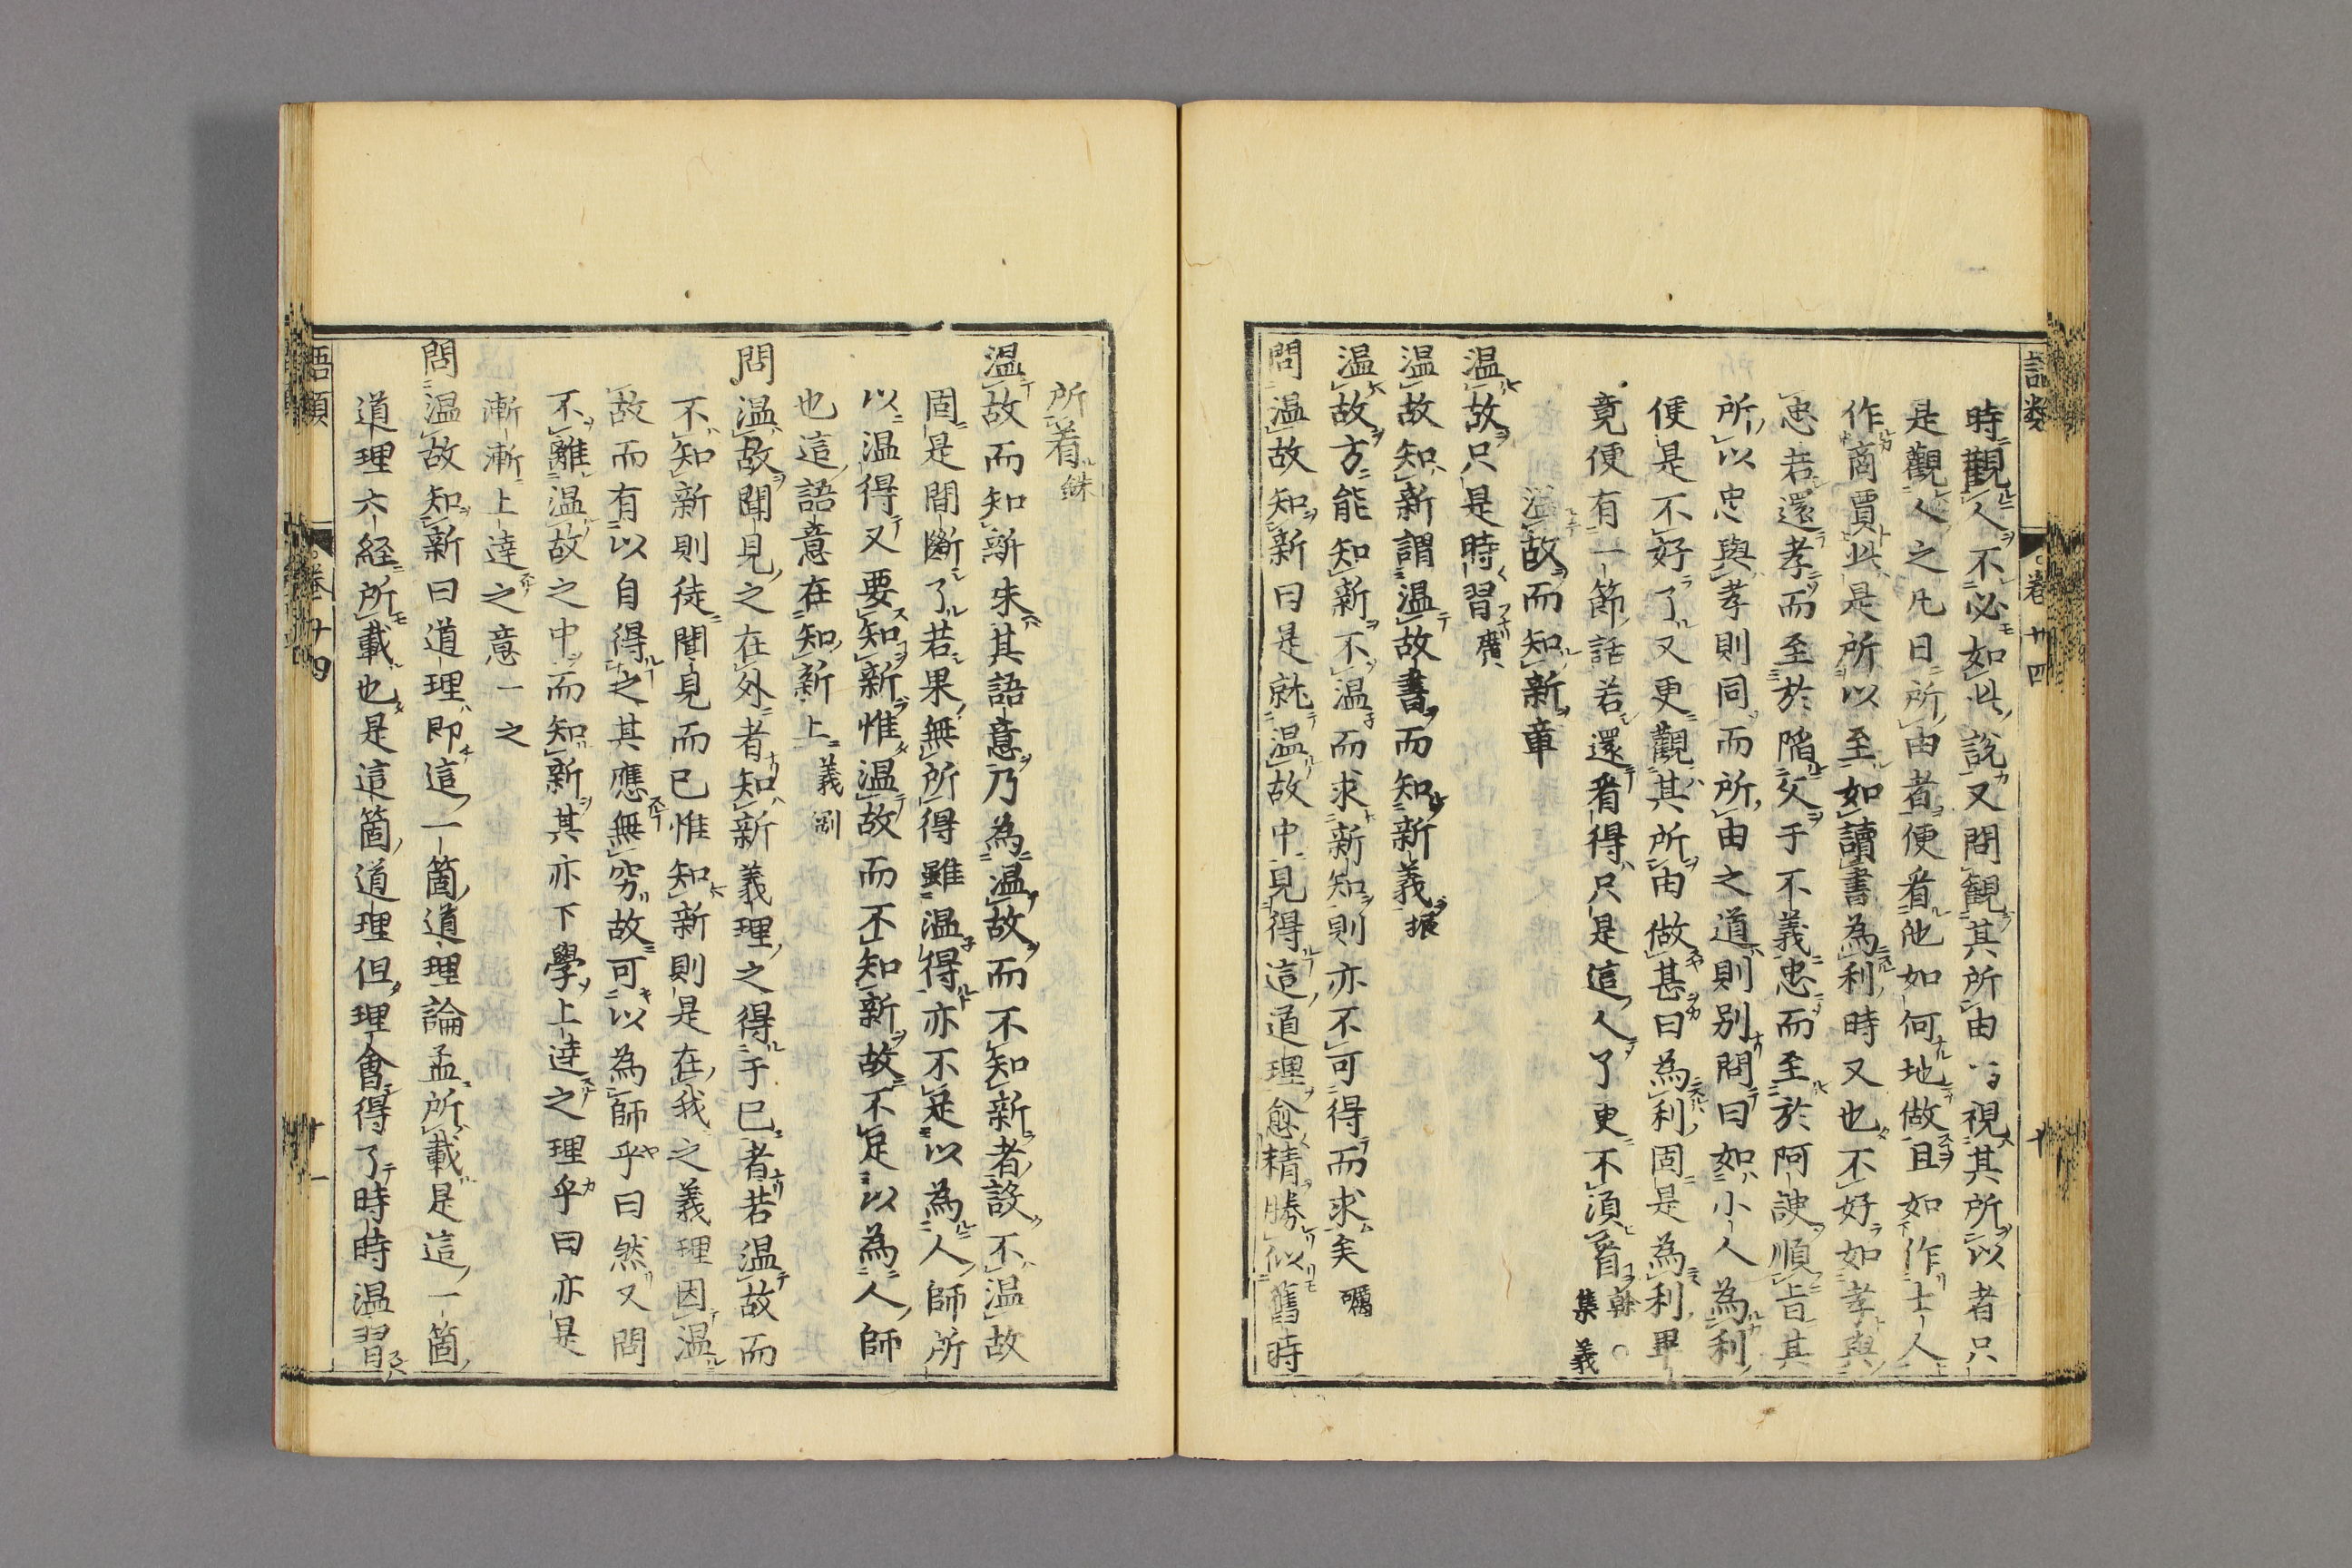 語類 卷廿四 十
時觀人不必如此說又問觀其所由以視其所以者只
是觀人之凡日所由者便看他如何地做且如作士人
作商賈此是所以至如讀書為利時又也不好如孝與
忠若還孝而至於陷父于不義忠而至於阿諛順旨其
所以忠與孝則同而所由之道則別問曰如小人為利
便是不好了又更觀其所由做甚曰為利固是為利畢
竟便有一節話若還看得只是這人了更不須看榦○集義
溫故而知新章
温故只是時習廣
温故知新謂温故書而知新義振
温故方能知新不温而求新知則亦不可得而求矣礪
問温故知新曰是就温故中見得這道理愈精勝似舊時
所看銖
温故而知新朱其語意乃為温故而不知新者設不温故
固是間斷了若果無所得雖温得亦不足以為人師所
以温得又要知新惟温故而不知新故不足以為人師
也這語意在知新上義剛
問温故聞見之在外者知新義理之得于己者若温故而
不知新則徒聞見而已惟知新則是在我之義理因温
故而有以自得之其應無窮故可以為師乎曰然又問
不離温故之中而知新其亦下學上達之理乎曰亦是
漸漸上達之意一之
問温故知新曰道理即這一箇道理論孟所載是這一箇
道理六經所載也是這箇道理但理會得了時時温習
語類 卷廿四 十一